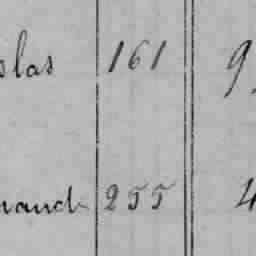 slas 161 9
nand 255 4